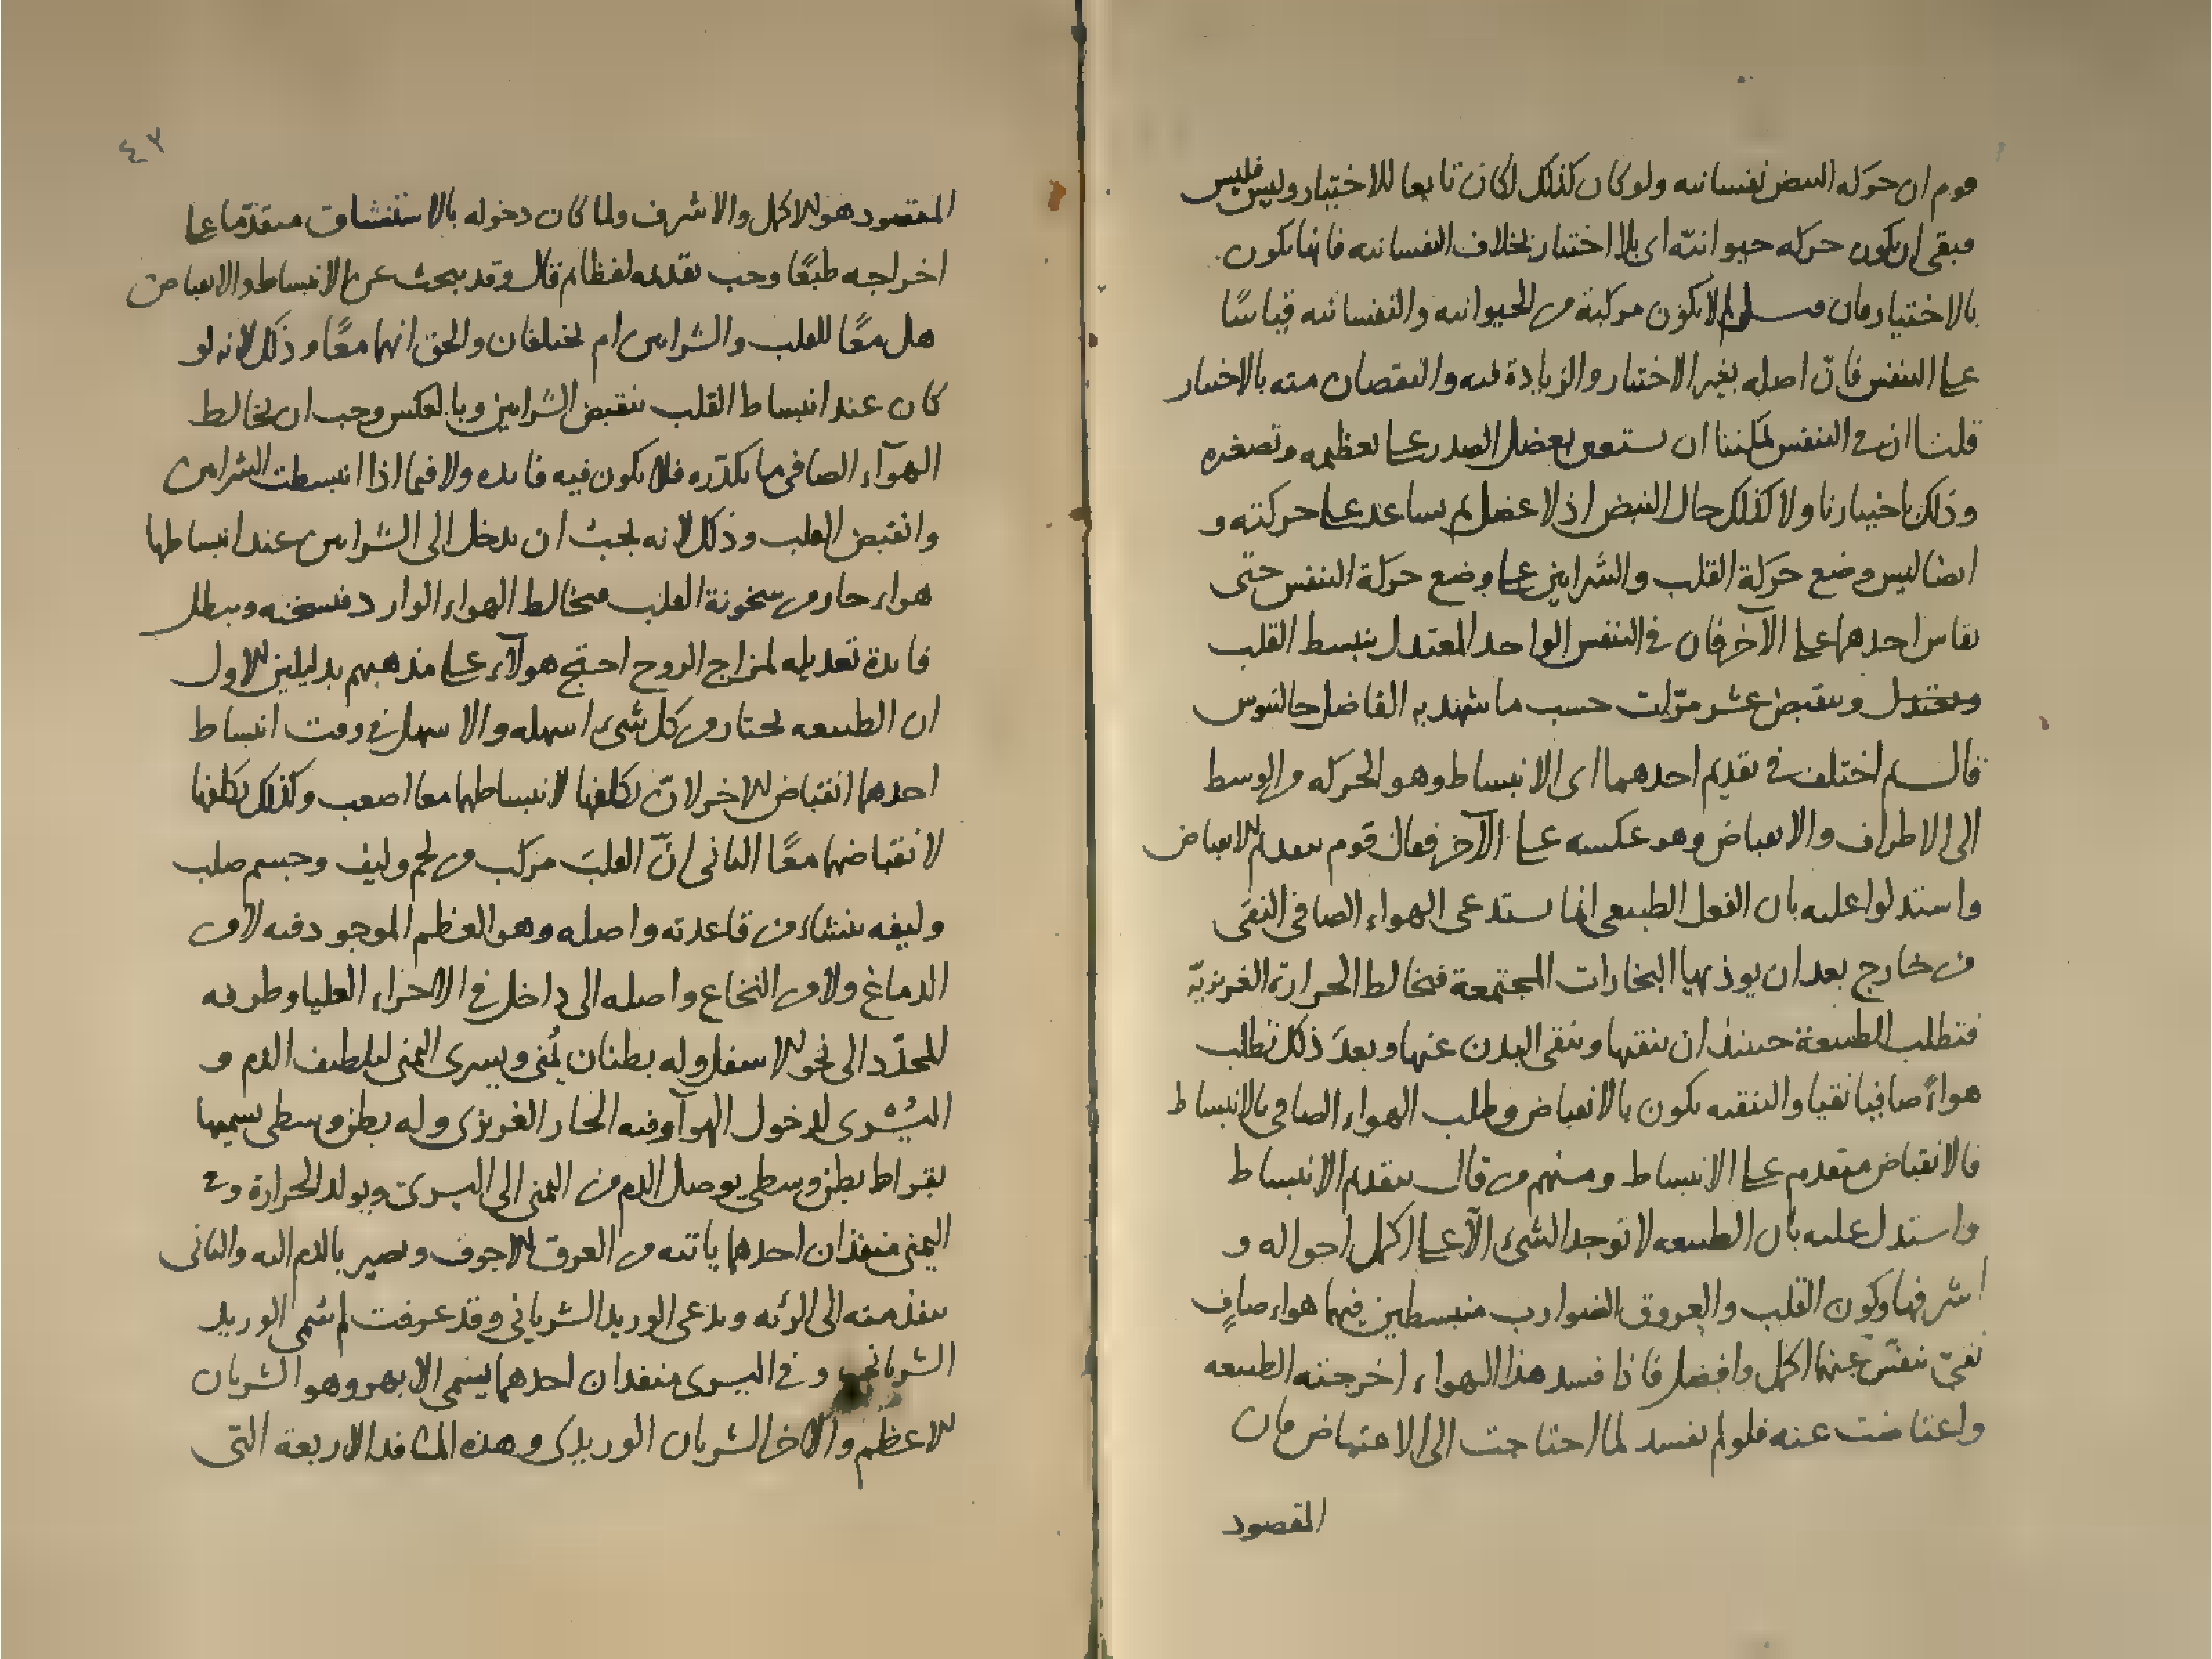 قوم ان حركه النبض نفسانيه ولو كان كذلك لكان تابعا للاختيار وليس فليس
فبقى ان يكون حركه حيوانيّه اى بلا اختيار بخلاف النفسانيه فانها يكون
بالاختيار فان قيل لم لا يكون مركبة من الحيوانيه والنفسانيه قياسًا
على التنفس فانّ اصله بغير الاختيار والزيادة فيه والنقصان منه بالاختيار
قلنا ان في التنفس يمكننا ان نستعين بعضل الصدر على تعظيمه وتصغيره
وذلك باختيارنا ولا كذلك حال النبض اذ لا عضل لم يساعد على حركته و
ايضا ليس وضع حركة القلب والشرايين على وضع حركة التنفس حتّى
يقاس احدهما على الآخر فان في التنفس الواحد المعتدل ينبسط القلب
ومعتدل وينقبض عشر مرّات حسب ما شهد به الفاضل جالينوس
قال ثم اختلف في تقديم احدهما اى الانبساط وهو الحركه من الوسط
الى الاطراف والانقباض وهو عكسه على الآخر فقال قوم بتقديم الانقباض
واستدلوا عليه بان الفعل الطبيعى انما يستدعى الهواء الصافى النقى
من خارج بعد ان يوذيها البخارات المجتمعة فيخالط الحرارة الغريزيّة
فتطلب الطبيعة حينئذ ان تنقيها وتنقى البدن عنها وبعدَ ذلك تطلب
هواءً صافيا نقيا والتنقيه يكون بالانقباض وطلب الهواء الصافى بالانبساط
فالانقباض متقدم على الانبساط ومنهم من قال بتقديم الانبساط
واستدل عليه بان الطبيعه لا توجد الشىء الّا على اكمل احواله و
اشرفها وكون القلب والعروق الضوارب منبسطين فيهما هواء صافٍ
نقىّ عنهما اكمل وافضل فاذا فسد هذا الهواء اخرجته الطبيعه
واعتاضت عنه فلو لم يفسد لما احتاجت الى الاعتياض فان
المقصود
٤٢
المقصود هو الاكمل والاشرف ولما كان دخوله بالاستنشاق متقدّما على
اخراجه طبعًا وجب تقديمه لفظا ثم قال وقد يبحث عن الانبساط والانقباض
هل معًا للقلب والشرايين ام يختلفان والحق انهما معًا وذلك لانه لو
كان عند انبساط القلب ينقبض الشرايين وبالعكس وجب ان يخالط
الهوآء الصافى ما يكدّره فلا يكون فيه فايده ولا فيما اذا انبسطت الشرايين
وانقبض القلب وذلك لانه يجب ان يدخل الى الشرايين عند انبساطها
هواء حار من سخونة القلب فيخالط الهواء الوارد فيسخنه ويبطل
فايدة تعديله لمزاج الروح احتج هولآء على مذهبهم بدليلين الاول
ان الطبيعه يختار من كل شىء اسهله والاسهل في وقت انبساط
احدهما انقباض الاخر لانّ تكلفها لانبساطهما معا اصعب وكذلك تكلفها
لانقباضهما معًا الثانى انّ القلبَ مركب من لحم وليف وجسم صلب
وليفه ينشاء من قاعدته واصله وهو العظم الموجود فيه لا من
الدماغ ولا من النخاع واصله الى داخل في الاجزاء العليا وطرفه
المحدّد الى نحو الاسفل وله بطنان يُمنى ويسرى اليمنى لتلطيف الدم و
اليُسْرى لدخول الهوآء وفيه الحار الغريزى وله بطن وسطى يسميها
بقراط بطن وسطى يوصل الدم من اليمنى الى اليسرى ويولد الحرارة وفي
اليمنى منفذان احدهما ياتيه من العرق الاجوف ويصير بالدم اليه والثانى
ينفذ منه الى الرئه ويدعى الوريد الشريانى وقد عرفت لم سمى الوريد
الشريانى وفي اليسرى منفذان احدهما يسمى الابهر وهو الشريان
الاعظم والاخر الشريان الوريدى وهذه المنافذ الاربعة التى